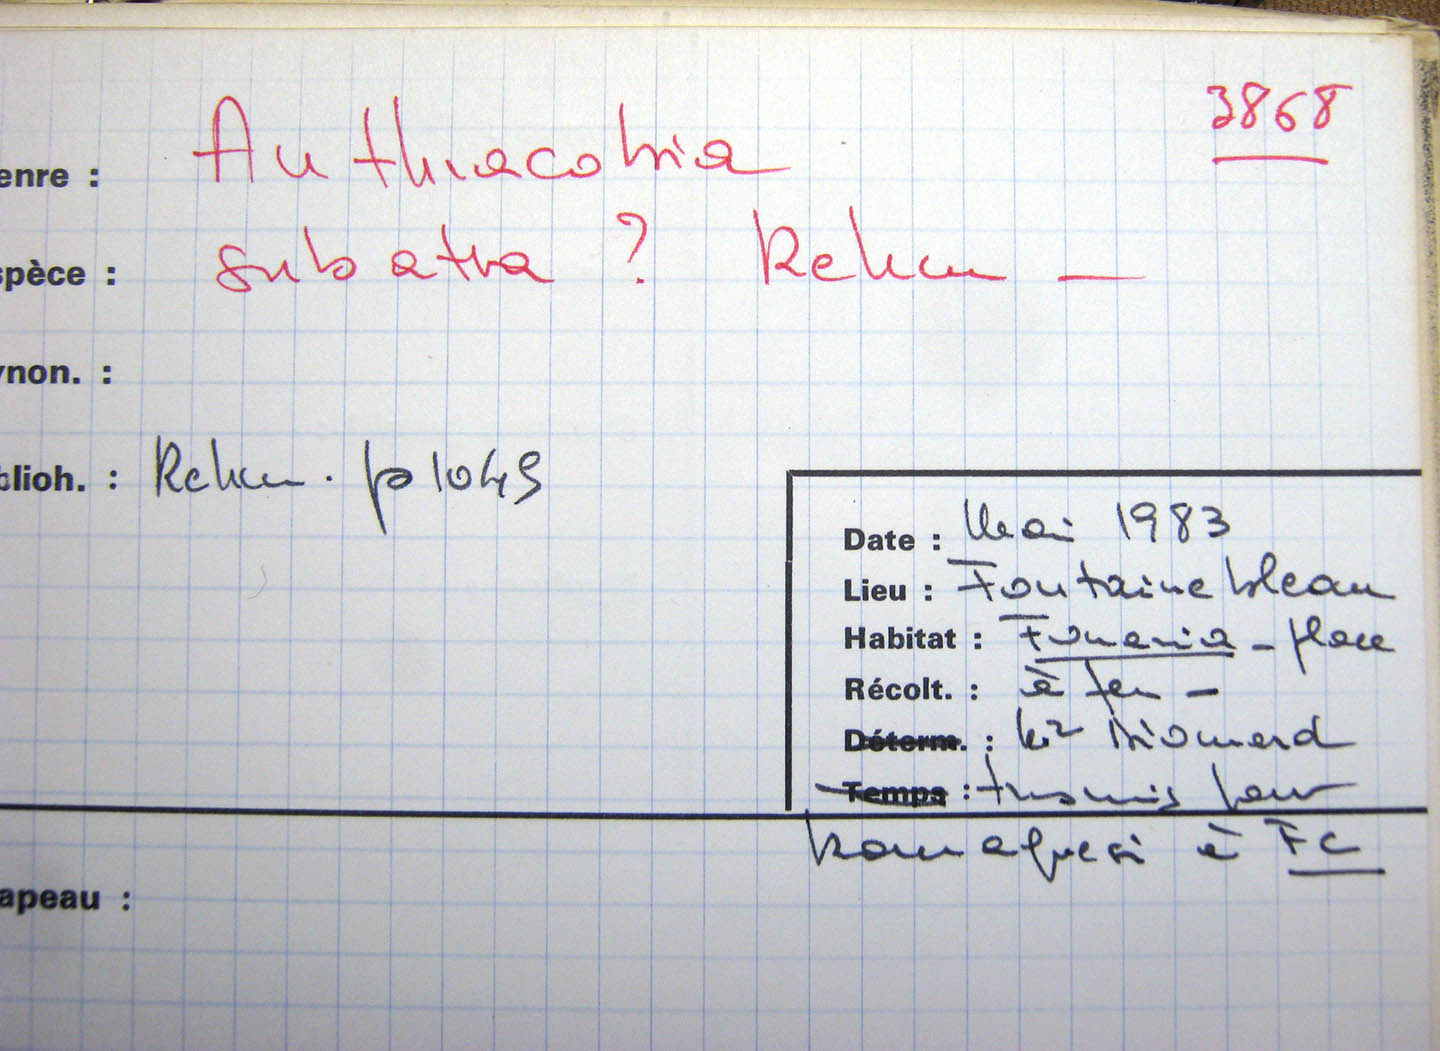 3868
enre : Anthracobia
spèce : subatra ? Rehm —
ynon. :
blioh. : Rehm . p 1049
Date : Mai 1983
Lieu : Fontainebleau
Habitat : Funaria - place
Récolt. : à feu -
Déterm. :
Temps : transmis par
Romagnesi à FC
apeau :